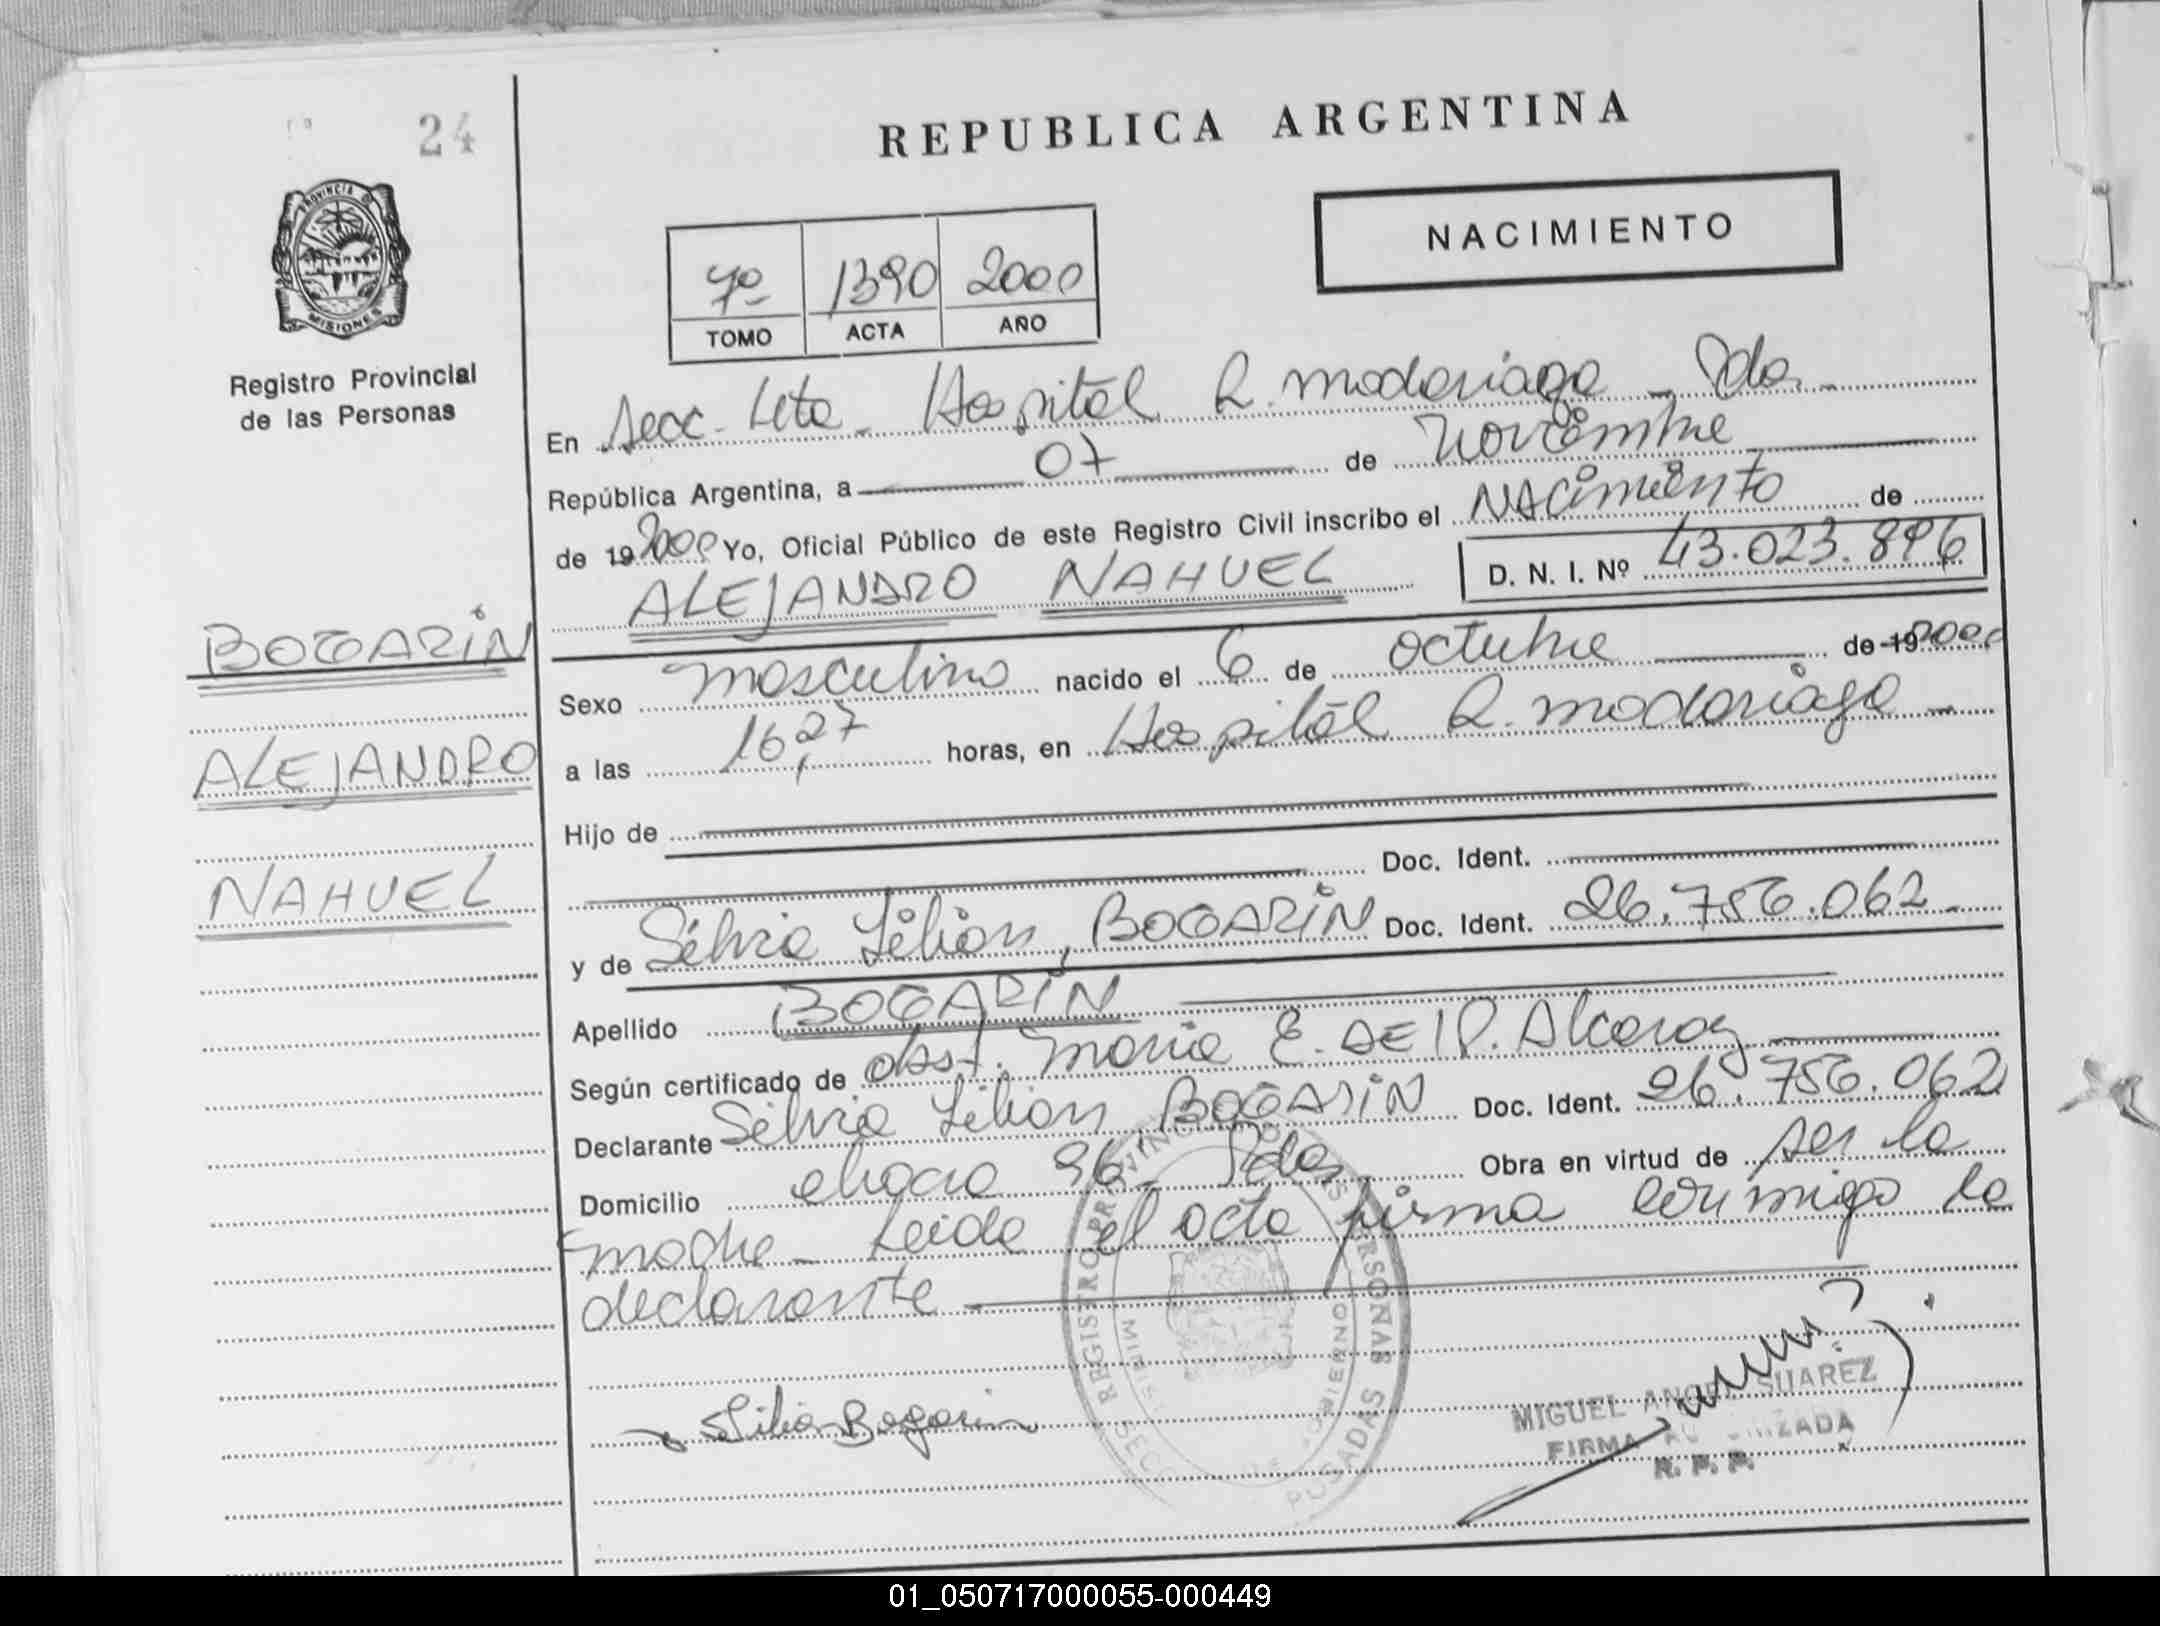 24
REPUBLICA ARGENTINA
NACIMIENTO
PROVINCIA DE
MISIONES
Registro Provincial
de las Personas
7º 1390 2000
TOMO ACTA AÑO
En Secc. Hospital R. Madariaga - Pdas.
República Argentina, a 07 de Noviembre
de 19 2000 Yo, Oficial Público de este Registro Civil inscribo el NACimiento de
ALEJANDRO NAHUEL D. N. I. Nº 43.023.896
BOGARIN
ALEJANDRO
NAHUEL
Sexo masculino nacido el 6 de octubre de 19 2000
a las 16,27 horas, en Hospital R. Madariaga -
Hijo de
Doc. Ident.
y de Silvia Lilian, BOGARIN Doc. Ident. 26.756.062 -
Apellido BOGARIN
Según certificado de obst. Maria E. DE P. Alcaraz
Declarante Silvia Lilian BOGARIN Doc. Ident. 26.756.062
Domicilio chacra 96 - Pdas. Obra en virtud de ser la
madre - Leida el acta firma conmigo la
declarante
Lilian Bogarin
REGISTRO PROVINCIAL DE LAS PERSONAS
POSADAS
MIGUEL ANGEL SUAREZ
FIRMA AUTORIZADA
R. P. P.
01_050717000055-000449